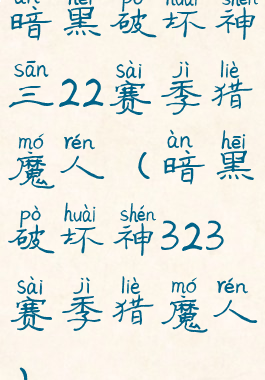 àn hēi pò huài shén
暗黑破坏神
sān sài jì liè
三22赛季猎
mó rén àn hēi
魔人(暗黑
pò huài shén
破坏神323
sài jì liè mó rén
赛季猎魔人
)